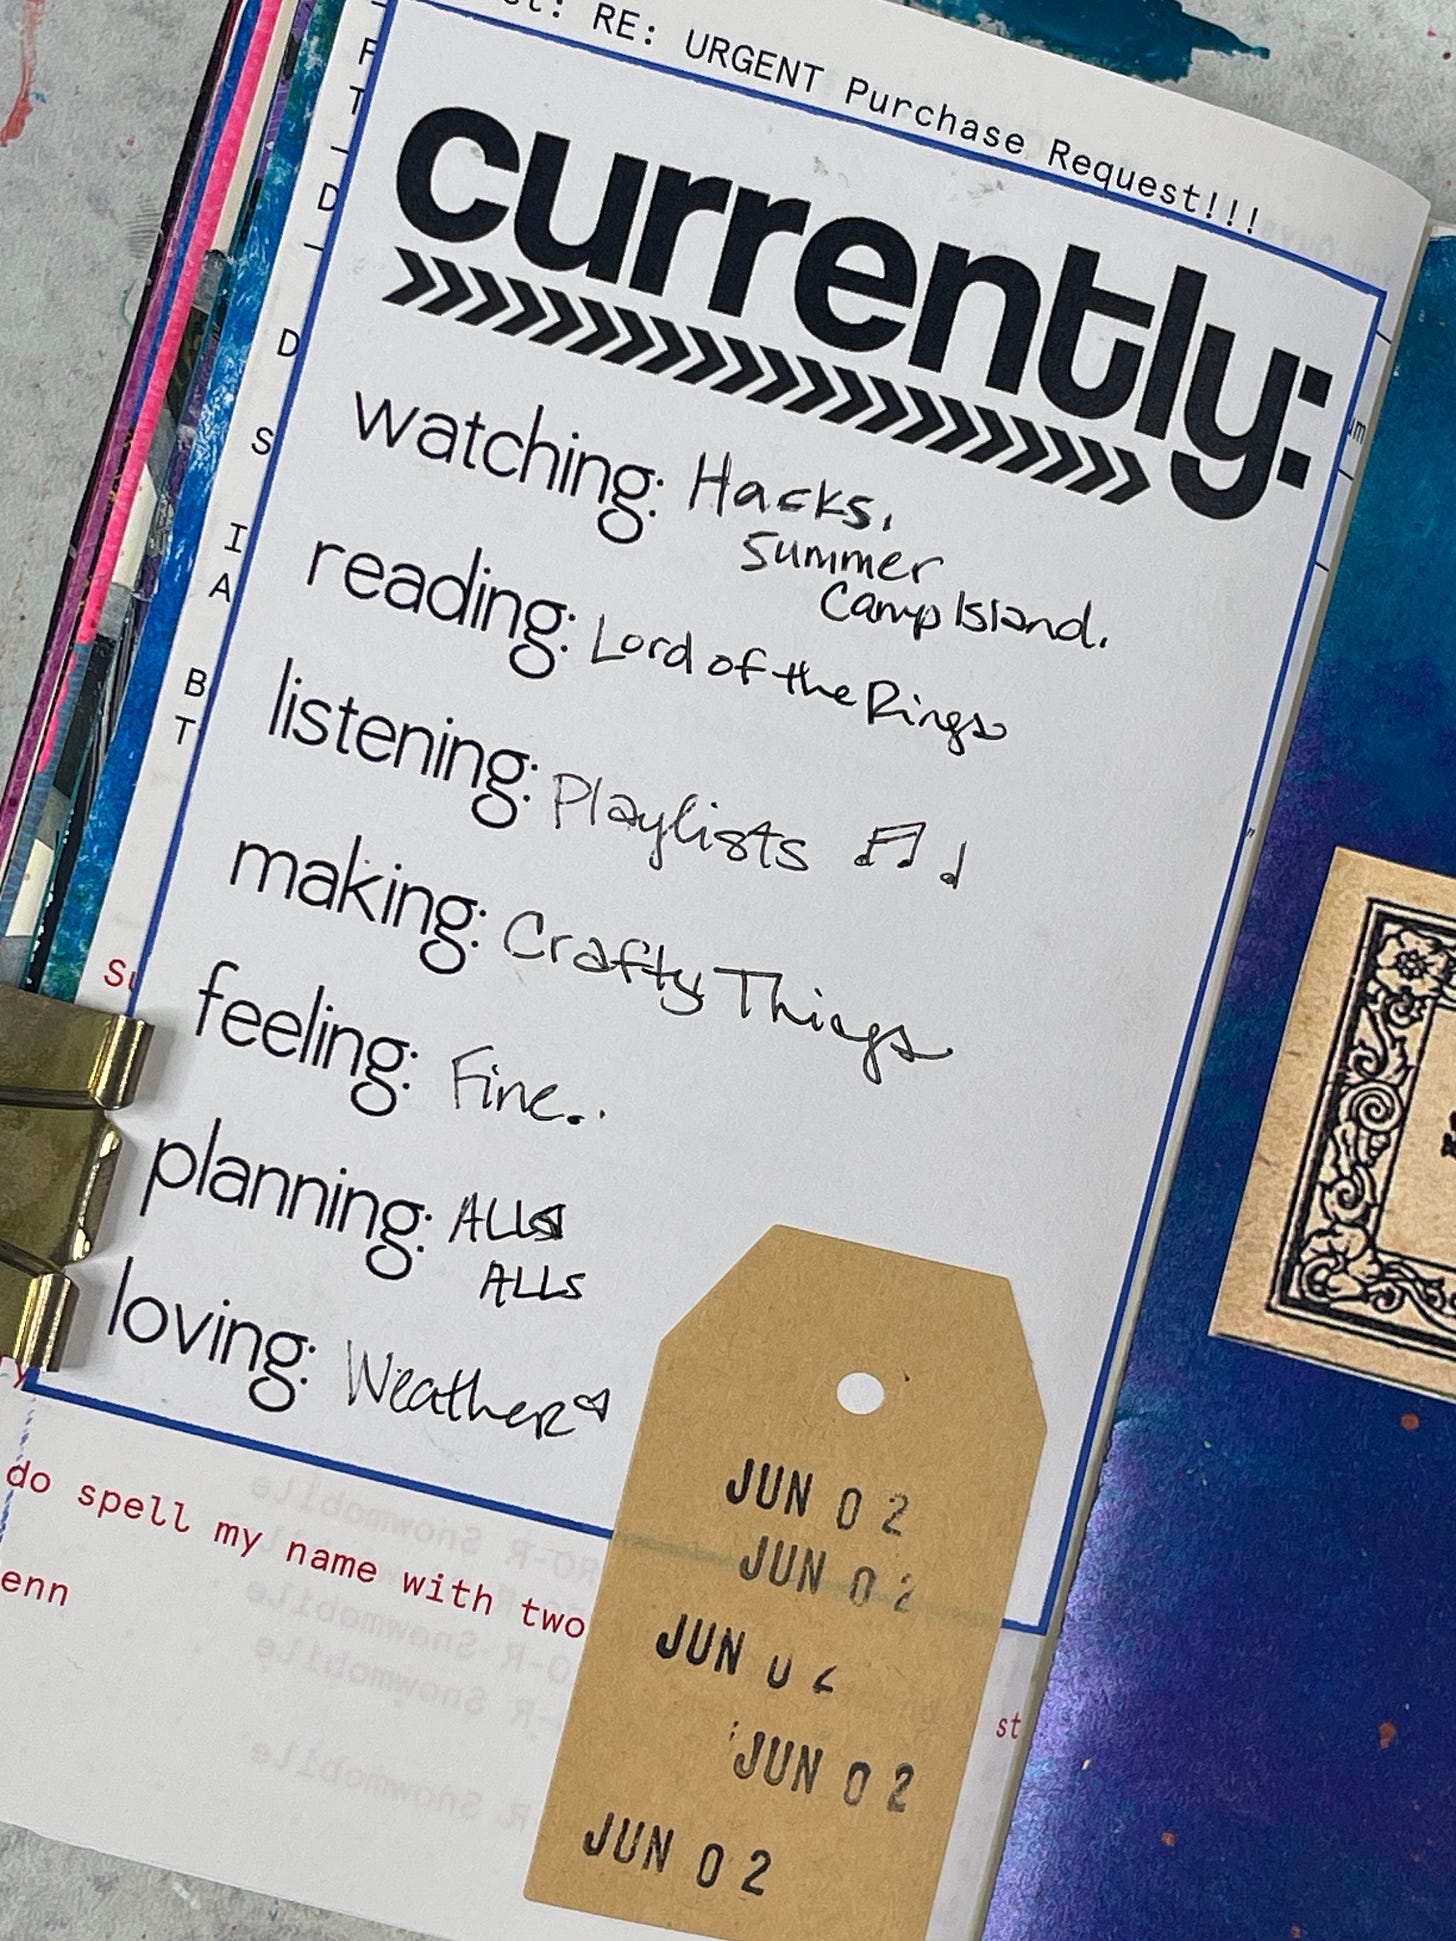 RE: URGENT Purchase Request!!!
currently:
watching: Hacks,
Summer
Camp Island.
reading: Lord of the Rings
listening: Playlists
making: Crafty Things
feeling: Fine..
planning: ALLS
ALLS
loving: Weather
do spell my name with two
enn
st
JUN 02
JUN 02
JUN 02
JUN 02
JUN 02
F
T
D
D
S
I
A
B
T